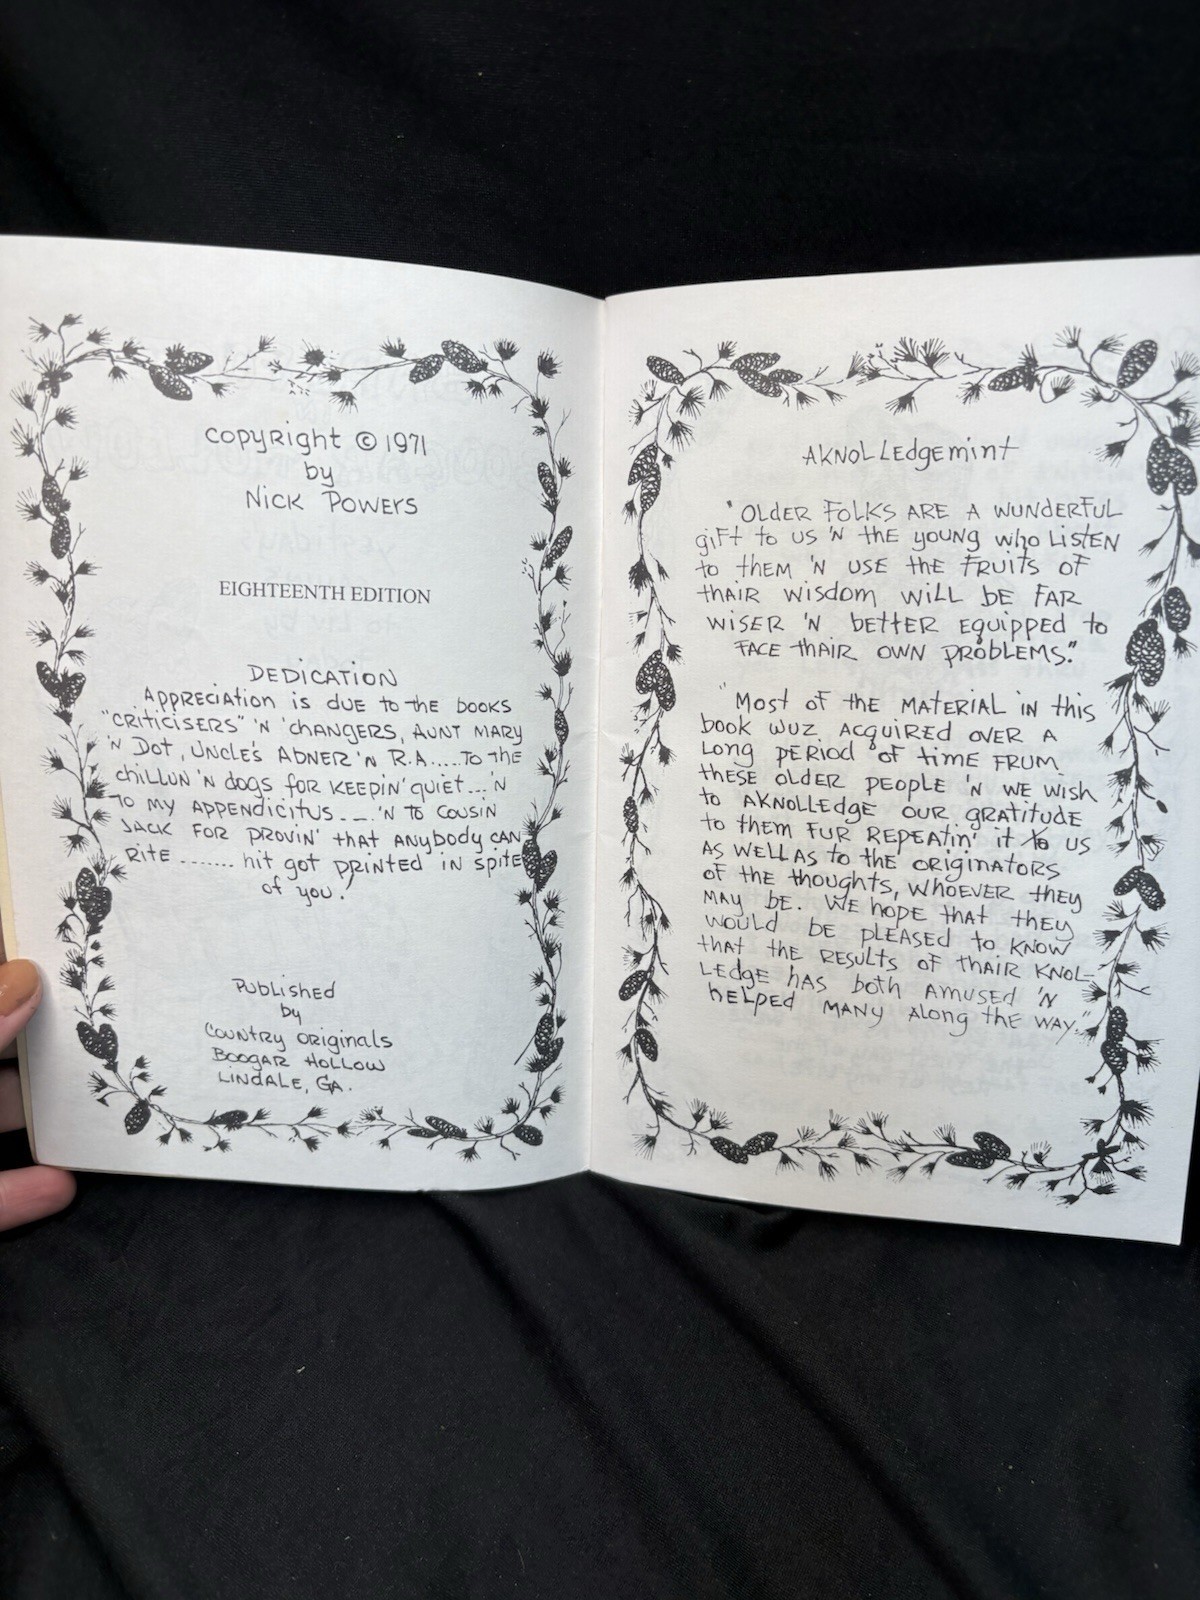 Copyright © 1971
by
Nick Powers
EIGHTEENTH EDITION
DEDICATION
Appreciation is due to the books
"criticisers" 'n 'changers, Aunt Mary
'n Dot, Uncle's Abner 'n R.A.....to the
chillun 'n dogs for keepin' quiet... 'n
to my appendicitus... 'n to cousin
Jack for provin' that anybody can
rite ....... hit got printed in spite
of you!
Published
by
Country Originals
Boogar Hollow
Lindale, Ga.
Aknolledgemint
"Older folks are a wunderful
gift to us 'n the young who listen
to them 'n use the fruits of
thair wisdom will be far
wiser 'n better equipped to
face thair own problems."
"Most of the material in this
book wuz acquired over a
long period of time frum
these older people 'n we wish
to aknolledge our gratitude
to them fur repeatin' it to us
as well as to the originators
of the thoughts, whoever they
may be. We hope that they
would be pleased to know
that the results of thair knol-
ledge has both amused 'n
helped many along the way."